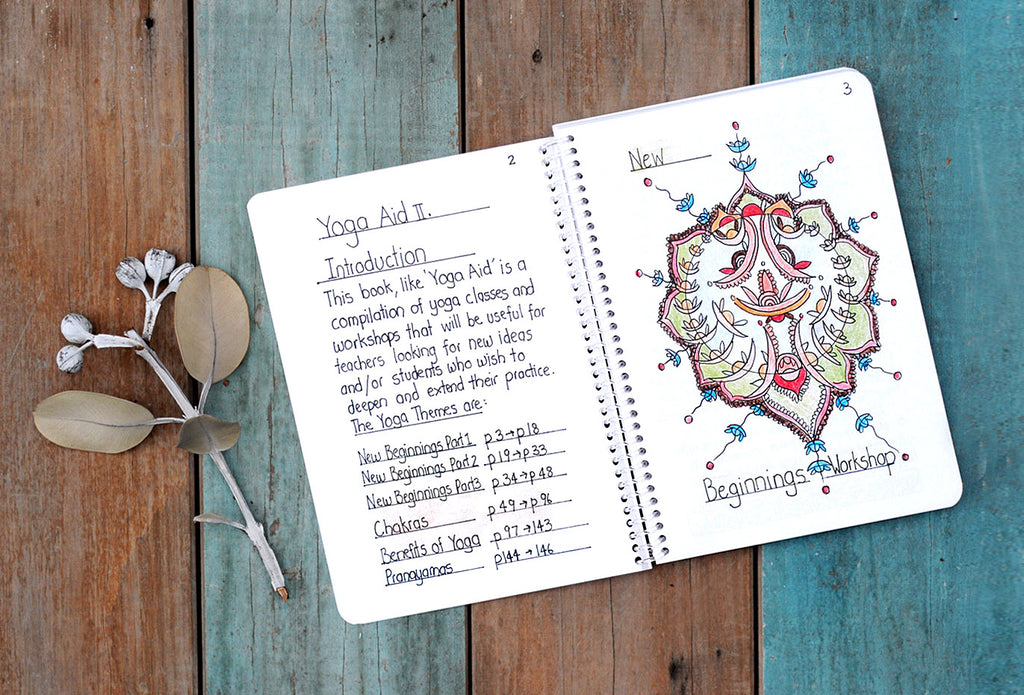 2
Yoga Aid II.
Introduction
This book, like 'Yoga Aid' is a
compilation of yoga classes and
workshops that will be useful for
teachers looking for new ideas
and/or students who wish to
deepen and extend their practice.
The Yoga Themes are:
New Beginnings Part 1 p 3→p18
New Beginnings Part 2 p19→p33
New Beginnings Part 3 p 34→p48
Chakras p 49→p96
Benefits of Yoga p 97→143
Pranayamas p144→146
3
New
Beginnings Workshop